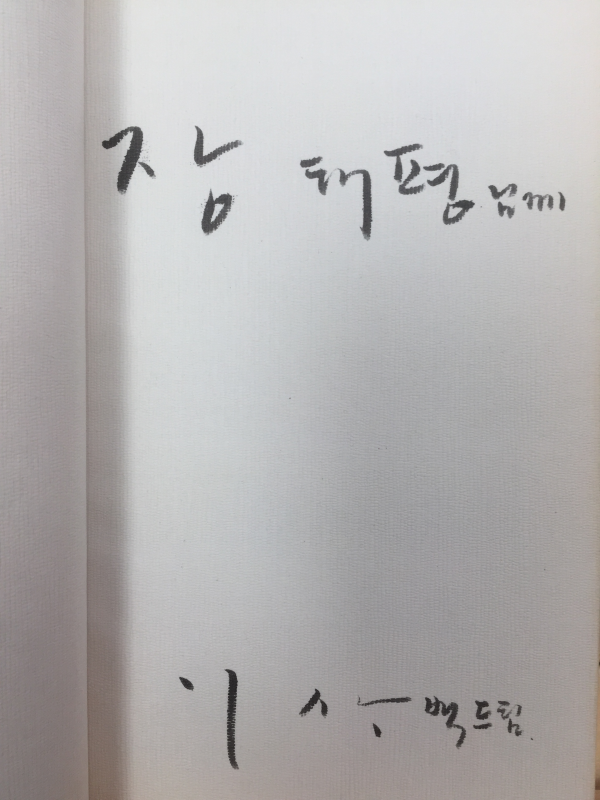 장 태평 님께
이 상백 드림.